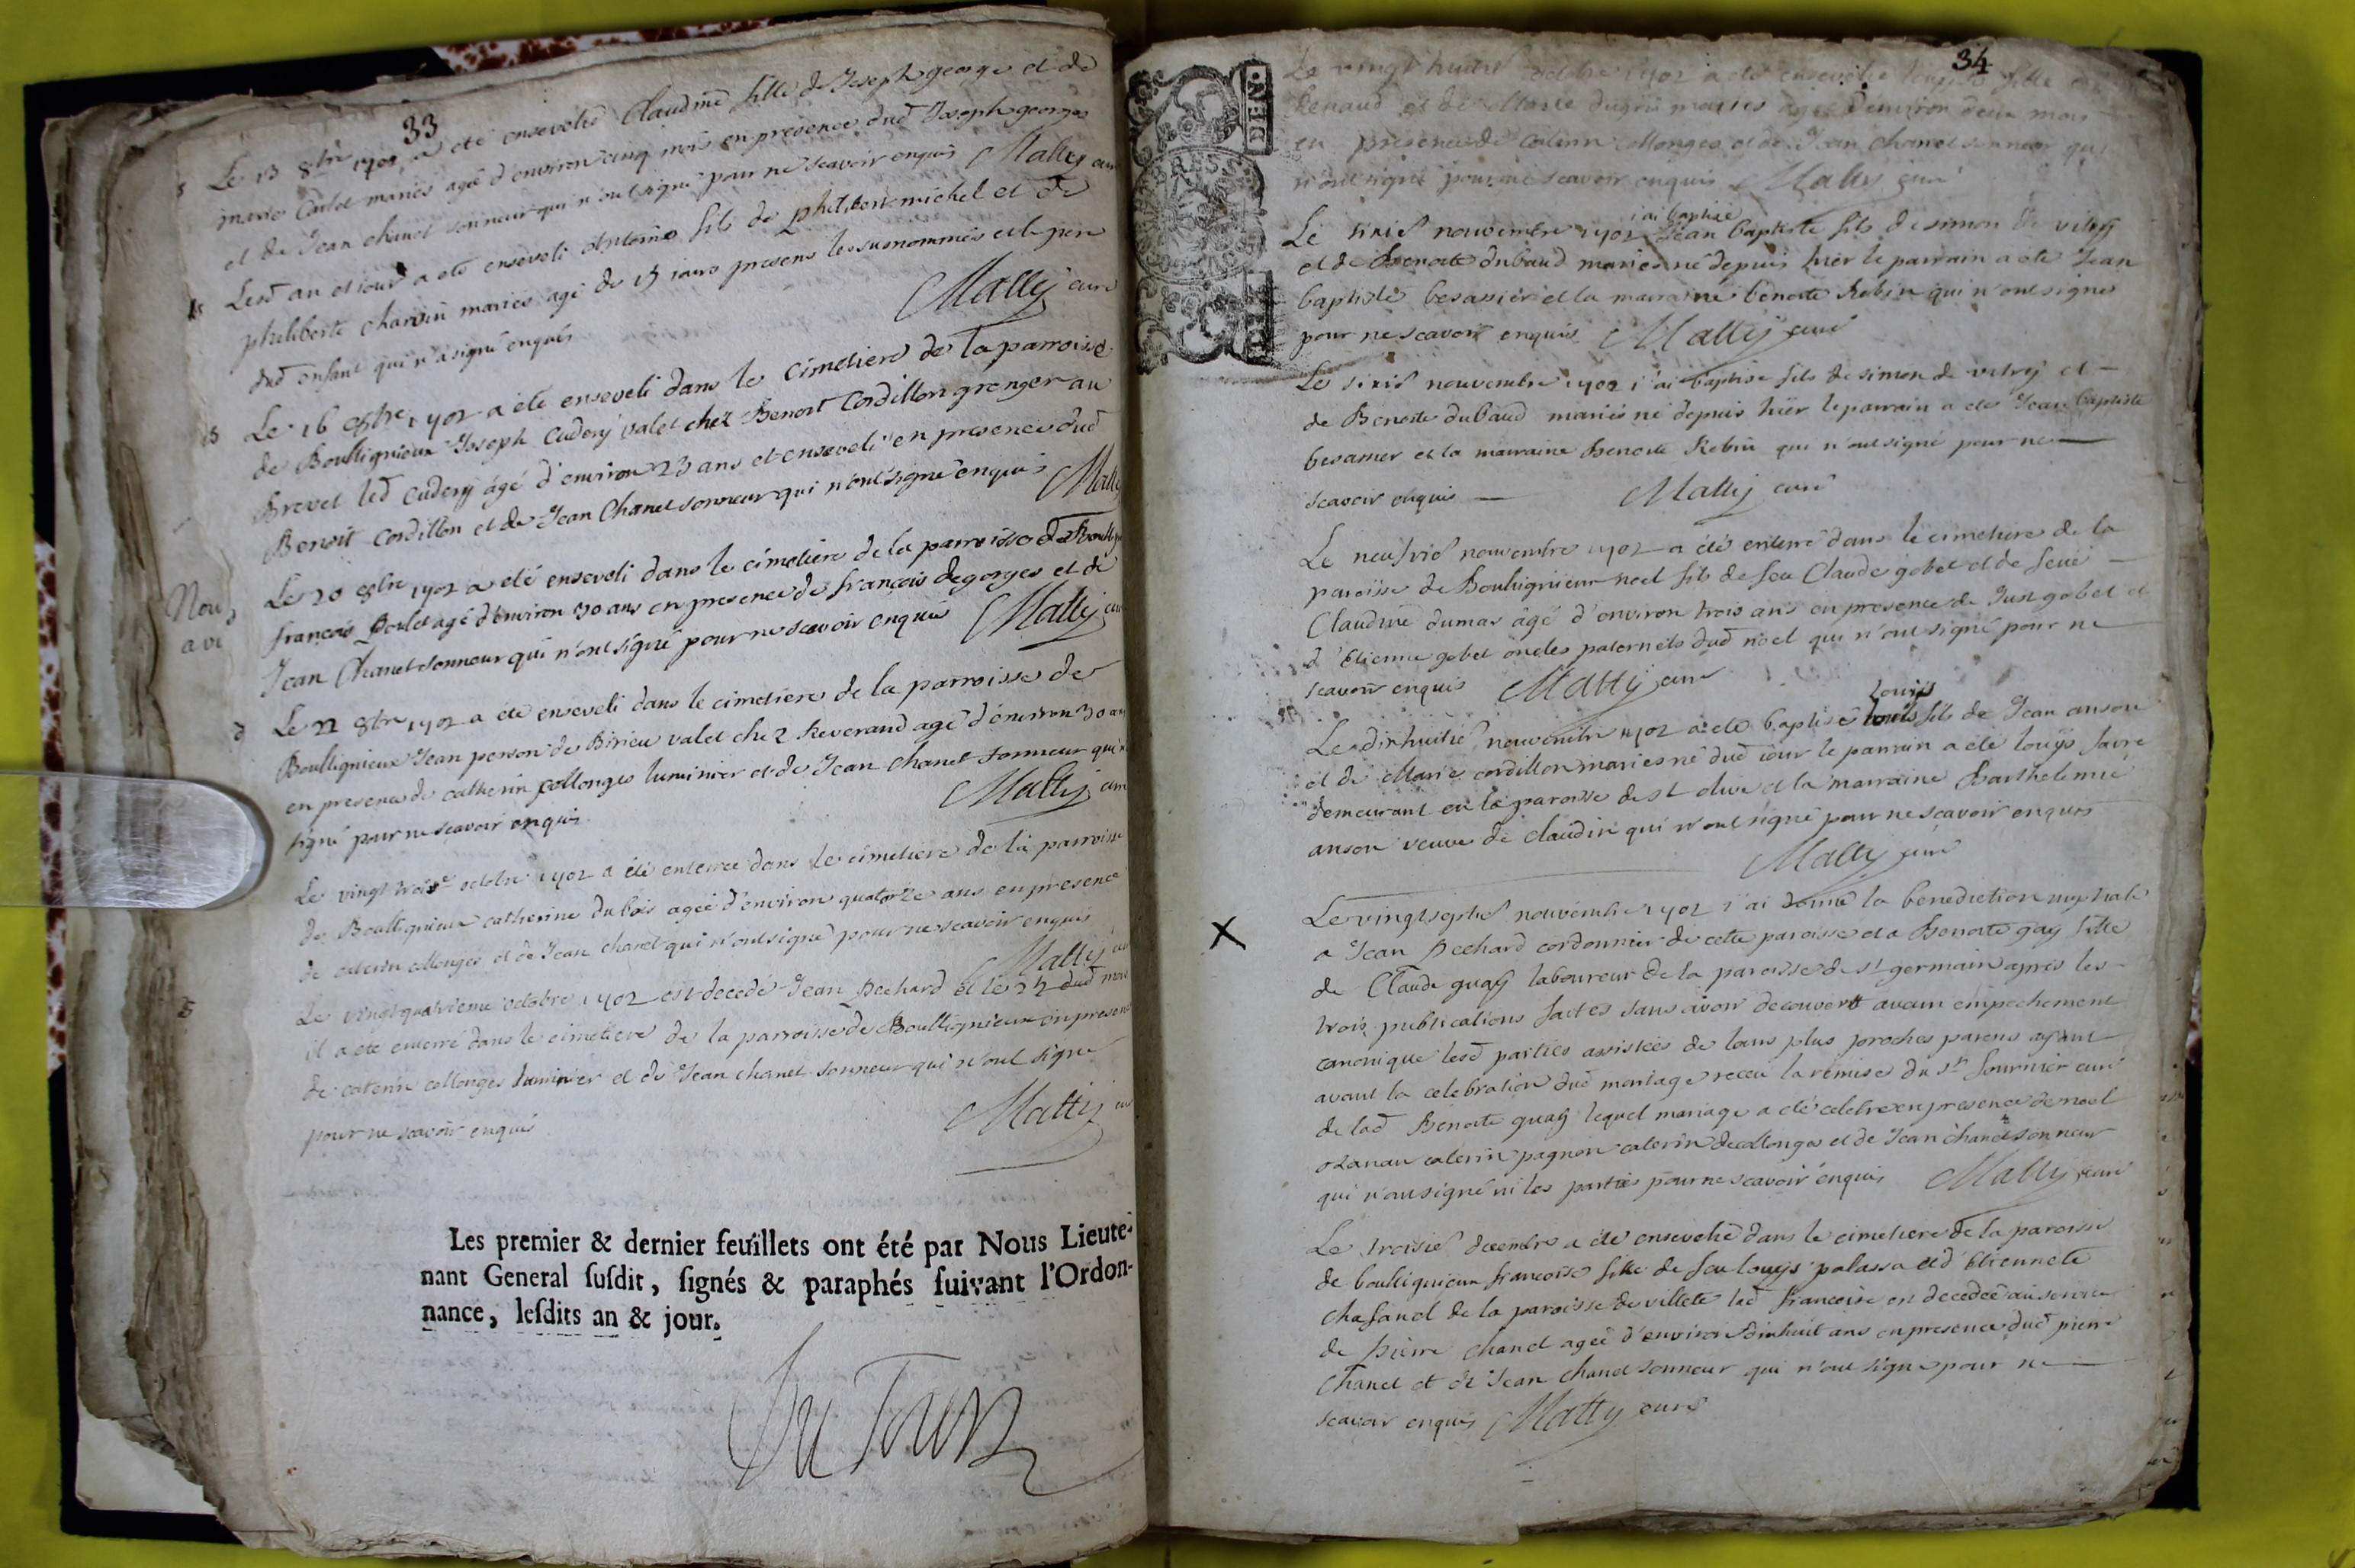 33
Le 13 8bre 1702 a été ensevelie Claudine fille de Joseph george et de
marie Carlet mariés agée d'environ cinq mois en presence dud Joseph george
et de Jean chanel sonneur qui n'ont signé pour ne scavoir enquis Matty curé
Lesd an et jour a été enseveli Antoine fils de philibert michel et de
philiberte charvin mariés agé de 15 jours presens les susnommés et le pere
dud enfant qui n'a signé enquis Matty curé
Le 16 8bre 1702 a été enseveli dans le cimetiere de la parroisse
de Boulligneux Joseph Cudery valet chez Benoit Cordillon granger au
Brevet led Cudery agé d'environ 23 ans et enseveli en presence dud
Benoit Cordillon et de Jean Chanel sonneur qui n'ont signé enquis Matty
Nou
a vi
Le 20 8bre 1702 a eté enseveli dans le cimetiere de la parroisse de Boullign
françois Poulet agé d'environ 30 ans en presence de françois degorges et de
Jean Chanel sonneur qui n'ont signé pour ne scavoir enquis Matty cur
Le 22 8bre 1702 a été enseveli dans le cimetiere de la parroisse de
Boulligneux Jean person de Birieu valet chez Reverand agé d'environ 30 an
en presence de catherin collonges luminier et de Jean chanel sonneur qui n
signé pour ne scavoir enquis Matty cur
Le vingt trois.e octobre 1702 a été enterrée dans le cimetiere de la parroisse
de Boulligneux catherine dubois agée d'environ quatorze ans en presence
de caterin collonges et de Jean chanel qui n'ont signé pour ne scavoir enquis
Matty cu
Le vingt quatrieme octobre 1702 est decedé Jean Pechard et le 25 dud mois
il a été enterré dans le cimetiere de la parroisse de Boulligneux en presenc
de caterin collonges luminier et de Jean chanel sonneur qui n'ont signé
pour ne scavoir enquis Matty cur
Les premier & dernier feuillets ont été par Nous Lieute-
nant General ſuſdit, ſignés & paraphés ſuivant l'Ordon-
nance, leſdits an & jour.
34
Le vingt huitie octobre 1702 a été ensevelie fille
Renaud et de Marie dugris mariés agée d'environ deux mois
en presence de caterin collonges et de Jean chanel sonneur qui
n'ont signé pour ne scavoir enquis Matty curé
j'ai baptisé
Le sixie nouvembre 1702 Jean baptiste fils de simon de vitry
et de Benoite dubaud mariés né depuis hier le parrain a été Jean
baptiste besanier et la marraine benoite Robin qui n'ont signé
pour ne scavoir enquis Matty curé
Le sixie nouvembre 1702 j'ai baptisé fils de simon de vitry et
de Benoite dubaud mariés né depuis hier le parrain a été Jean baptiste
besanier et la marraine benoite Robin qui n'ont signé pour ne
scavoir enquis Matty curé
Le neufvie nouvembre 1702 a été enterré dans le cimetiere de la
paroisse de Boulligneux noel fils de feu Claude gobet et de feüe
Claudine dumas âgé d'environ trois ans en presence de Just gobet et
d'Etienne gobet oncles paternels dud noel qui n'ont signé pour ne
scavoir enquis Matty curé
louys
Le dixhuitie nouvembre 1702 a été baptisé louis fils de Jean anson
et de Marie cordillon mariés né dud jour le parrain a été louys favre
demeurant en la paroisse de st olive et la marraine Barthelemie
anson veuve de claudin qui n'ont signé pour ne scavoir enquis
Matty curé
X
Le vingtseptie nouvembre 1702 j'ai donné la benediction nuptiale
a Jean Pechard cordonnier de cette paroisse et a Benoite gay fille
de Claude guay laboureur de la paroisse de st germain apres les
trois publications faites sans avoir decouvert aucun empechement
canonique lesd parties assistées de leurs plus proches parens ayant
avant la celebration dud mariage receu la remise du sr fournier curé
de lad Benoite guay lequel mariage a été celebré en presence de noel
ozanau caterin pagnon caterin decollonges et de Jean chanel sonneur
qui n'ont signé ni les parties pour ne scavoir enquis Matty curé
Le troisie decembre a été ensevelie dans le cimetiere de la paroisse
de boulligneux francoise fille de feu louys palassa et d'Etiennete
chasanel de la paroisse de villete lad francoise en decedée au service
de pierre chanel agée d'environ dixhuit ans en presence dud pierre
chanel et de Jean chanel sonneur qui n'ont signé pour ne
scavoir enquis Matty curé